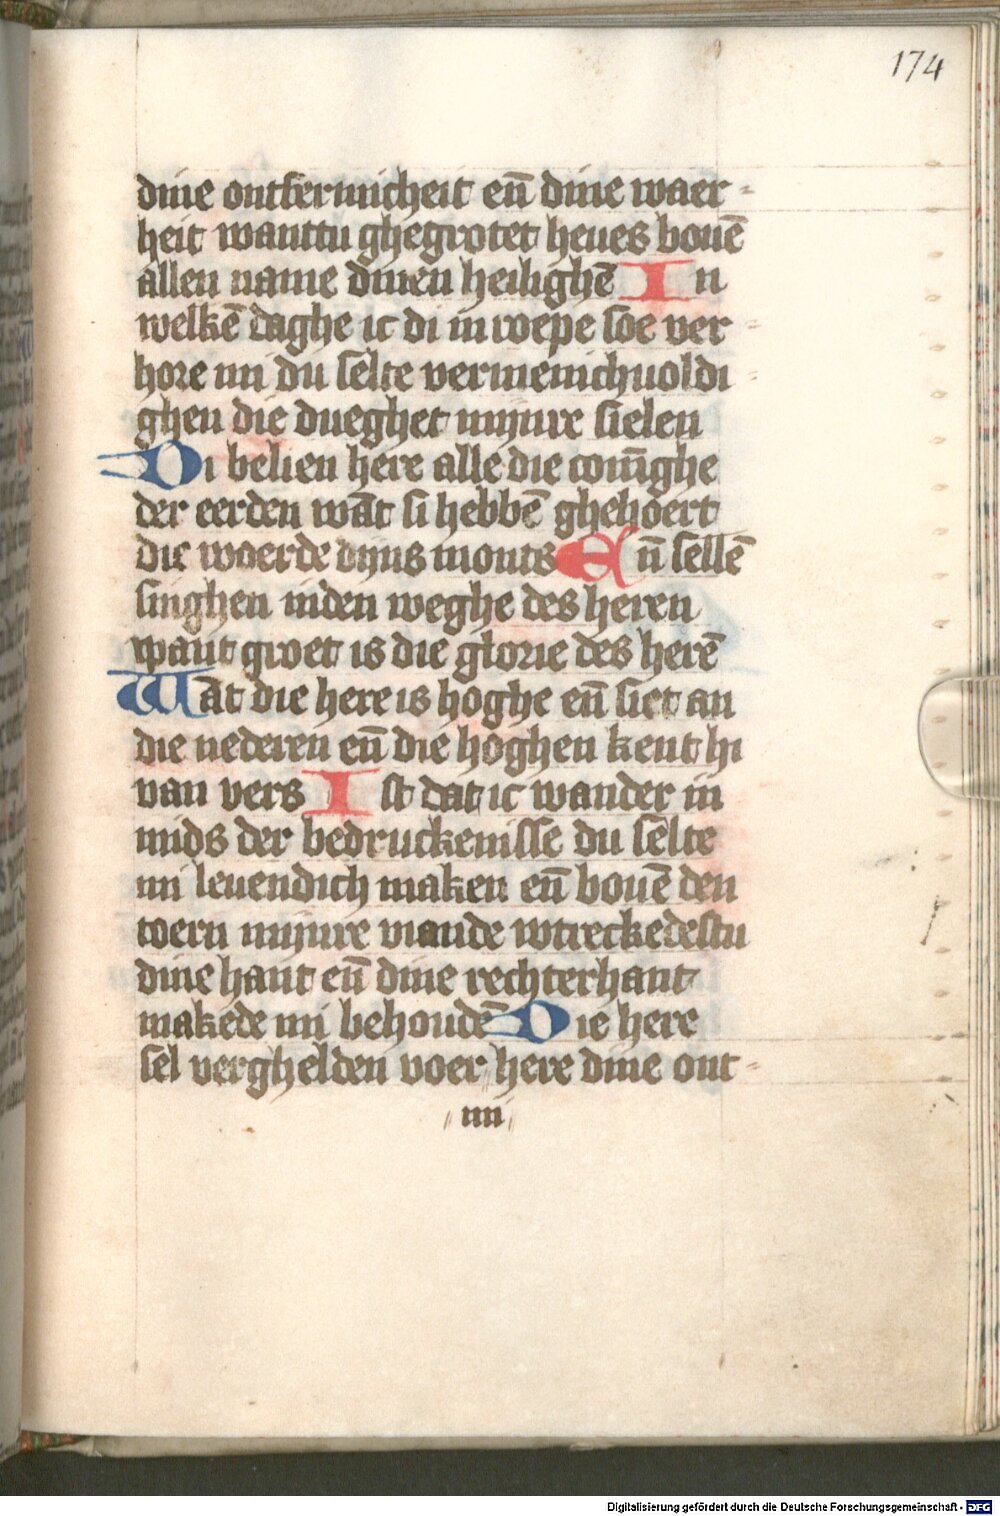 174
dine ontfermicheit en̄ dine waer-
heit wanttu ghegrotet heues bouē
allen name dinen heilighē In
welkē daghe ic di in roepe soe ver-
hore mi du selte vermenichuoldi-
ghen die dueghet mijnre sielen
Di belien here alle die conighe
der eerden wāt si hebbē ghehoert
die woerde dijns monts En̄ sellē
singhen inden weghe des heren
want groet is die glorie des herē
Wāt die here is hoghe en̄ siet an
die nederen en̄ die hoghen kent hi
van vers Ist dat ic wander in
mids der bedruckenisse du selte
mi leuendich maken en̄ bouē den
toern mijnre viande wtreckedestu
dine hant en̄ dine rechterhant
makede mi behoudē Die here
sel verghelden voer here dine ont-
mi
Digitalisierung gefördert durch die Deutsche Forschungsgemeinschaft - DFG